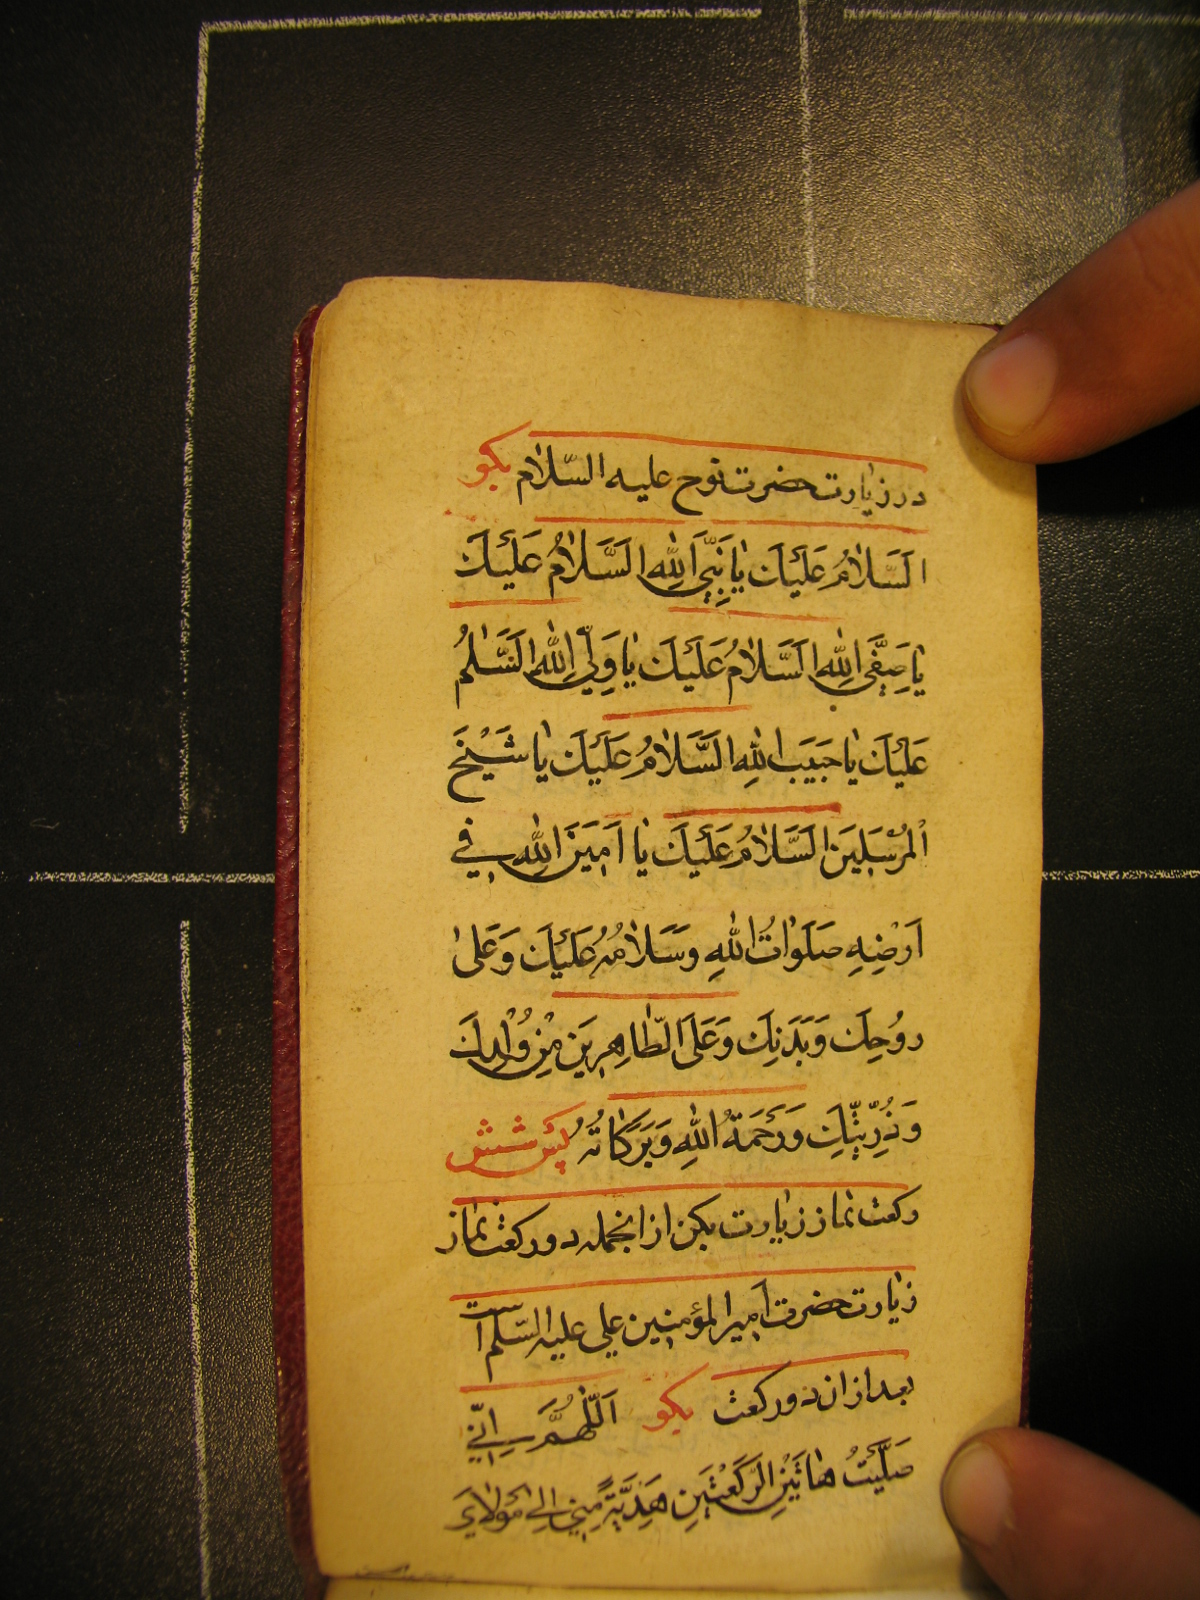 در زیارت حضرت نوح علیه السّلام بکو
اَلسَّلامُ عَلَیْكَ یا نَبِیَّ اللهِ اَلسَّلامُ عَلَیْكَ
یا صَفِیَّ اللهِ اَلسَّلامُ عَلَیْكَ یا وَلِیَّ اللهِ اَلسَّلٰمُ
عَلَیْكَ یا حَبیبَ اللهِ اَلسَّلامُ عَلَیْكَ یا شَیْخَ
الْمُرْسَلینَ اَلسَّلامُ عَلَیْكَ یا اَمینَ اللهِ فی
اَرْضِهِ صَلَواتُ اللهِ وَسَلامُهُ عَلَیْكَ وَعَلیٰ
روُحِكَ وَبَدَنِكَ وَعَلَی الطّاهِرینَ مِنْ وُلْدِكَ
وَذُرِّیَّتِكَ وَرَحْمَةُ اللهِ وَبَرَکاتُهُ پس شش
رکعت نماز زیارت بکن ازانجمله دو رکعت نماز
زیارت حضرت امیر المؤمنین علی علیه السّلم است
بعد ازان دو رکعت بکو اَللّهُمَّ اِنّی
صَلَّیْتُ هاتَیْنِ الرَّکْعَتَیْنِ هَدِیَّةً مِنّی اِلی مَوْلایَ